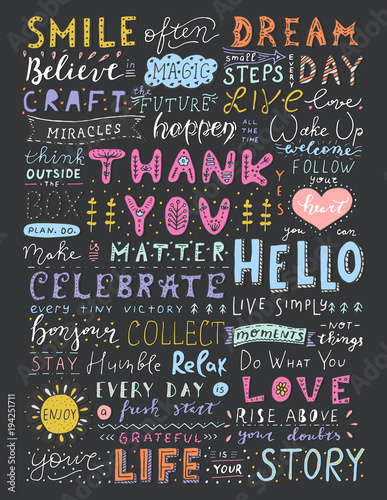 SMILE often DREAM
Believe in MAGIC small STEPS EVERY DAY
CRAFT the FUTURE LIVE love
MIRACLES happen ALL THE TIME Wake Up
think OUTSIDE THE BOX THANK YOU welcome
FOLLOW your heart
YES you can
PLAN. DO.
Make is MATTER HELLO
CELEBRATE
every tiny VICTORY LIVE Simply
Bonjour COLLECT moments NOT things
STAY Humble Relax Do What You LOVE
ENJOY EVERY DAY IS a fresh start
RISE ABOVE your doubts
GRATEFUL
your LIFE IS YOUR STORY.
Adobe Stock | #194251711